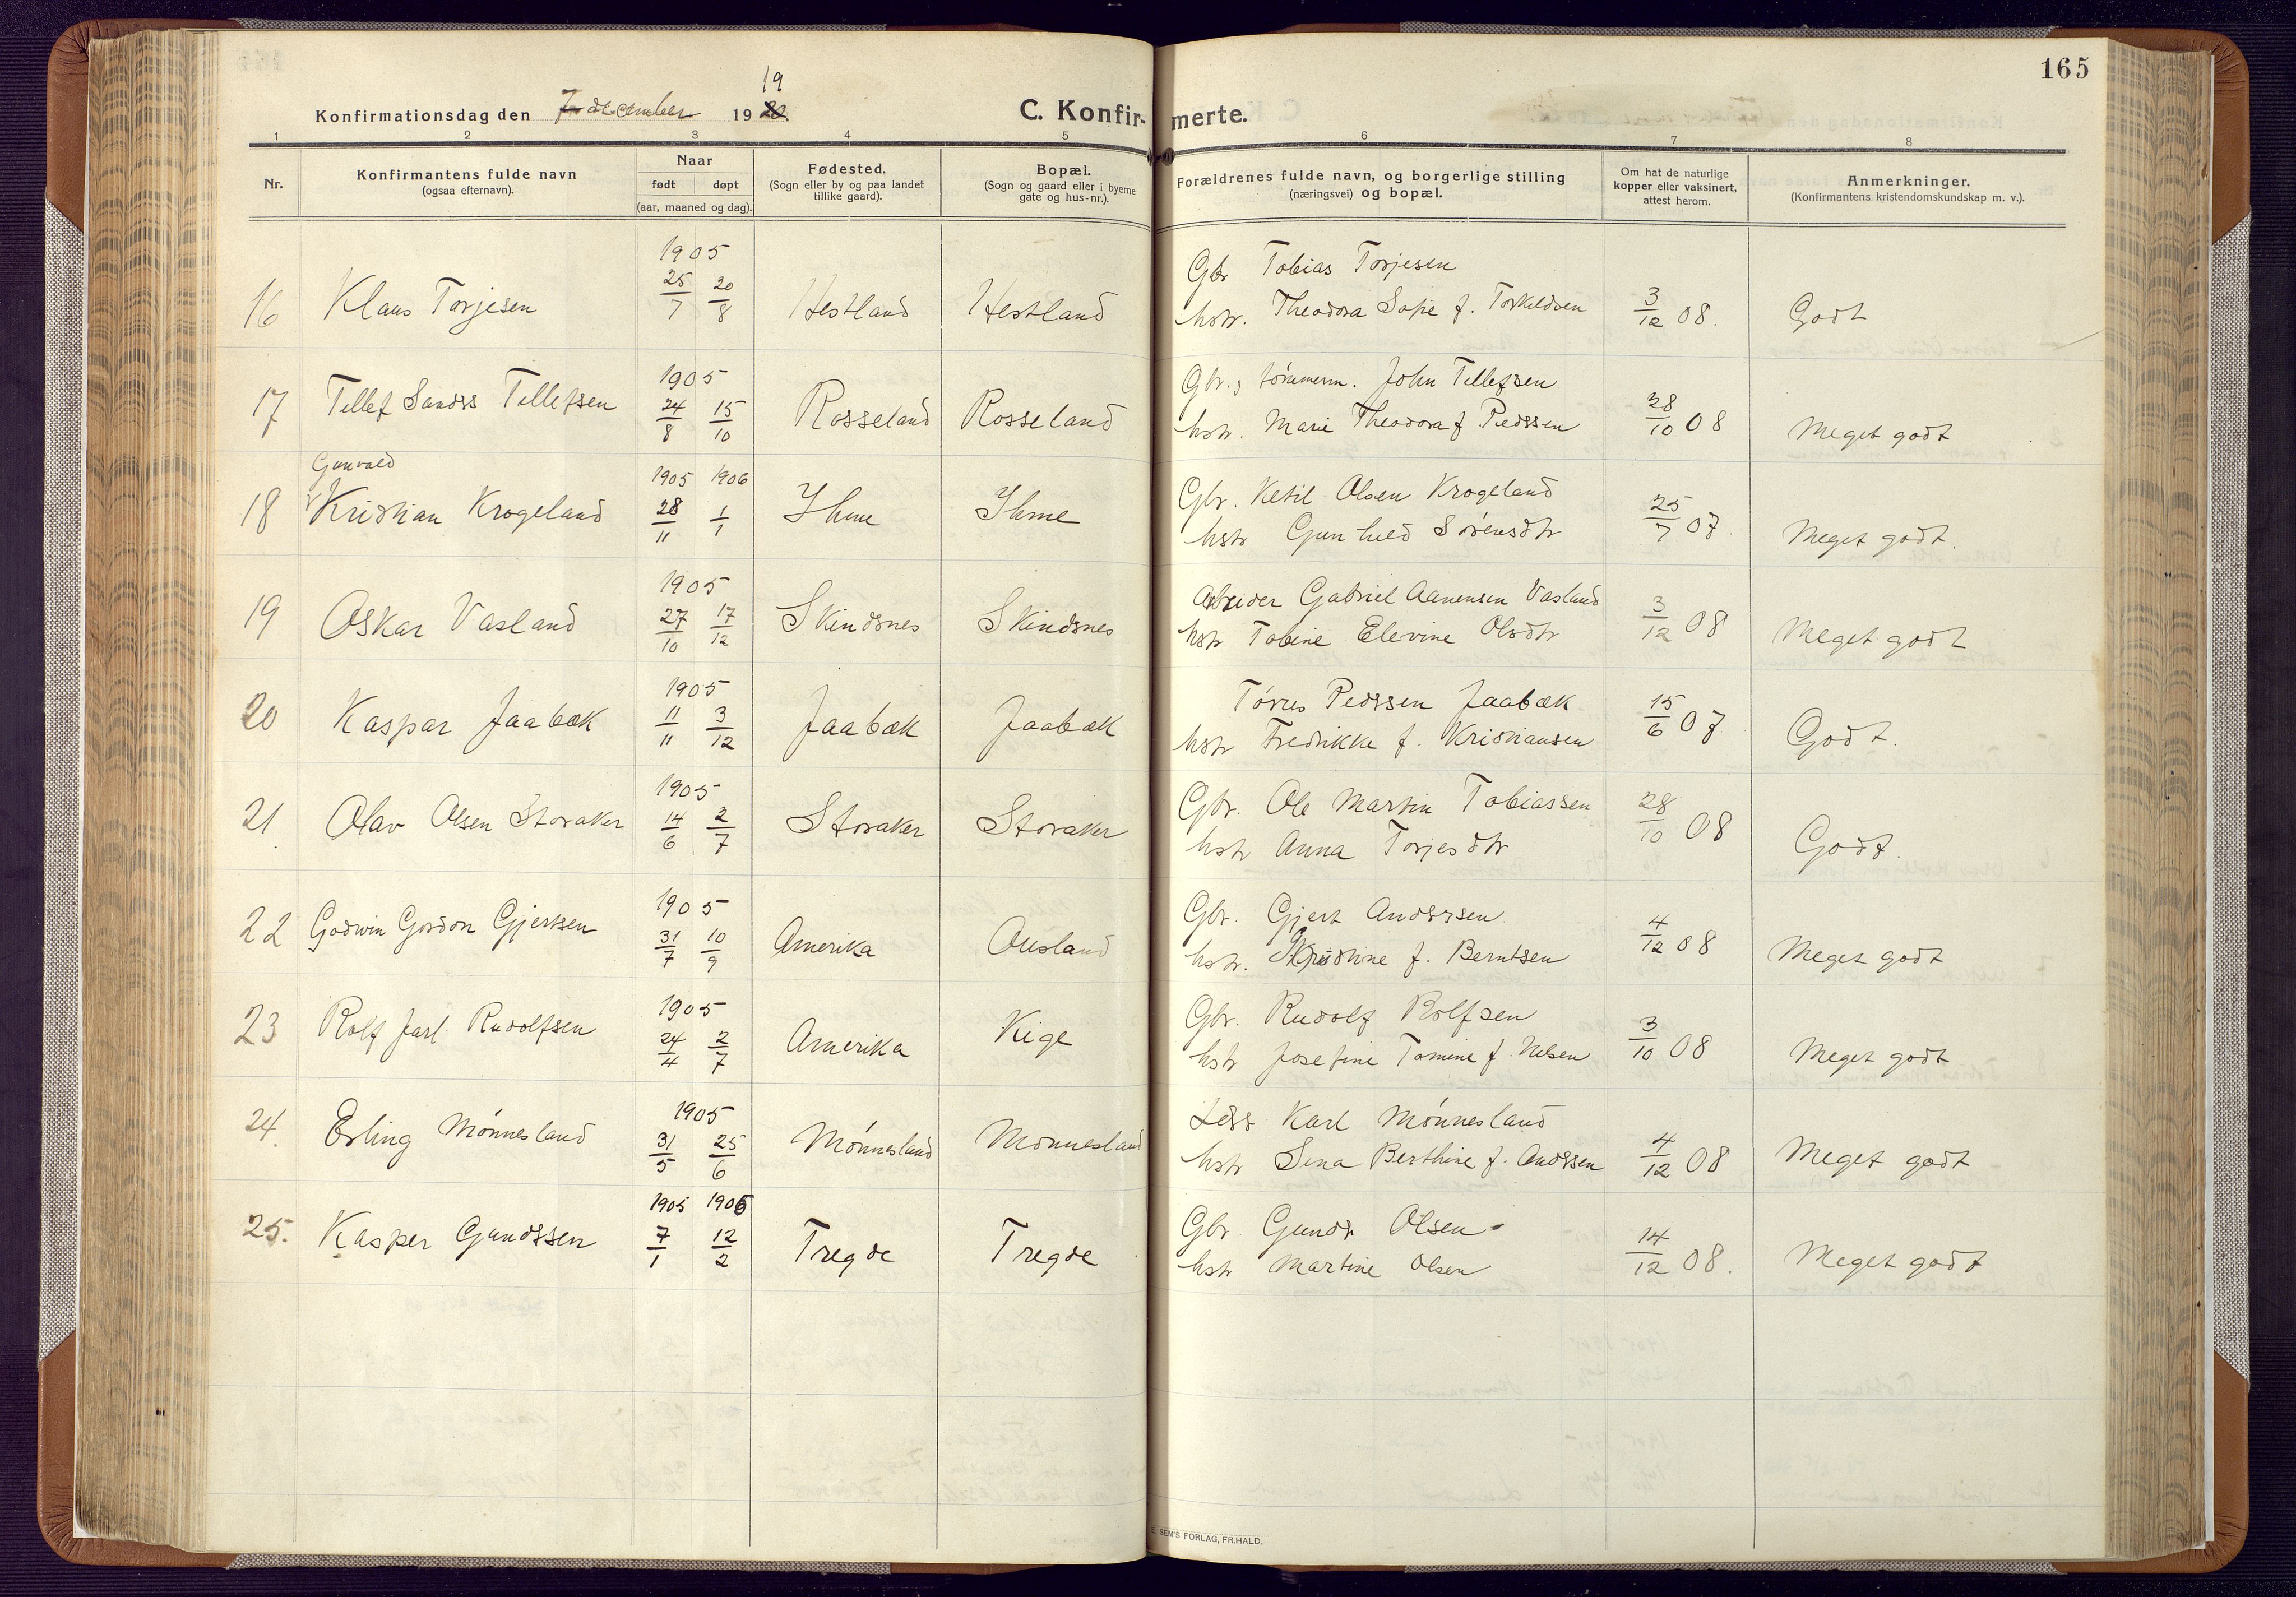 165
19
Konfirmationsdag den 7 december 19 20.
C. Konfir- merte.
1 2 3 4 5 6 7 8
Nr.
Konfirmantens fulde navn
(ogsaa efternavn).
Naar
født døpt
(aar, maaned og dag).
Fødested.
(Sogn eller by og paa landet
tillike gaard).
Bopæl.
(Sogn og gaard eller i byerne
gate og hus-nr.).
Forældrenes fulde navn, og borgerlige stilling
(næringsvei) og bopæl.
Om hat de naturlige
kopper eller vaksinert,
attest herom.
Anmerkninger.
(Konfirmantens kristendomskundskap m. v.).
1905
Gbr Tobias Torjesen
16 Klaus Torjesen 25/7 20/8 Hestland Hestland
hstr. Theodora Sofie f. Torkildsen 3/12 08. Godt
1905
Gbr. g tömmerm. John Tellefsen
17 Tellef Sandrs Tellefsen 24/8 15/10 Rosseland Rosseland
hstr. Marie Theodora f Pedssen 28/10 08 Meget godt
Gunvald
1905 1906
Gbr. Ketil Olsen Krogeland
18 Kristian Krogeland 28/11 1/1 Ihme Ihme
hstr Gunhild Sörensdtr 25/7 07. Meget godt.
1905
Arbeider Gabriel Aanensen Vasland
19 Oskar Vasland 27/10 17/12 Skindsnes Skindsnes
hstr Tobine Elevine Olsdtr 3/12 08 Meget godt
1905
Törres Pedssen Jaabæk
20 Kaspar Jaabæk 11/11 3/12 Jaabæk Jaabæk
hstr Fredrikke f. Kristiansen 15/6 07 Godt.
1905
Gbr. Ole Martin Tobiassen
21. Olav Olsen Storaker 14/6 2/7 Storaker Storaker
hstr Anna Torjesdtr 28/10 08 Godt.
1905
Gbr. Gjert Anderssen
22 Godwin Gordon Gjertsen 31/7 10/9 Amerika Ousland
hstr. f. Berntsen 4/12 08 Meget godt
1905
Gbr. Rudolf Rolfsen
23 Rolf Jarl Rudolfsen 24/4 2/7 Amerika Kige
hstr Josefine Tomine f. Nilsen 3/10 08 Meget godt
1905
Karl Mönnesland
24. Erling Mönnesland 31/5 25/6 Mönnesland Mönnesland
hstr Sina Berthine f. Andssen 4/12 08 Meget godt
1905 1905
Gbr Gundr Olsen
25. Kasper Gundssen 7/1 12/2 Tregde Tregde
hstr Martine Olsen 14/12 08. Meget godt
E. SEM'S FORLAG, FR.HALD.